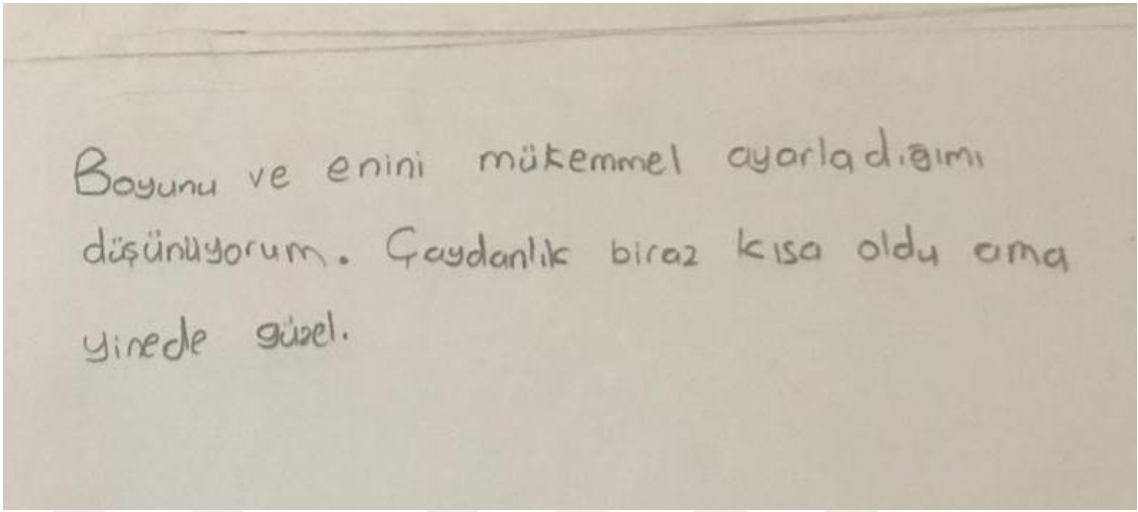 Boyunu ve enini mükemmel ayarladığımı
düşünüyorum. Çaydanlık biraz kısa oldu ama
yinede güzel.